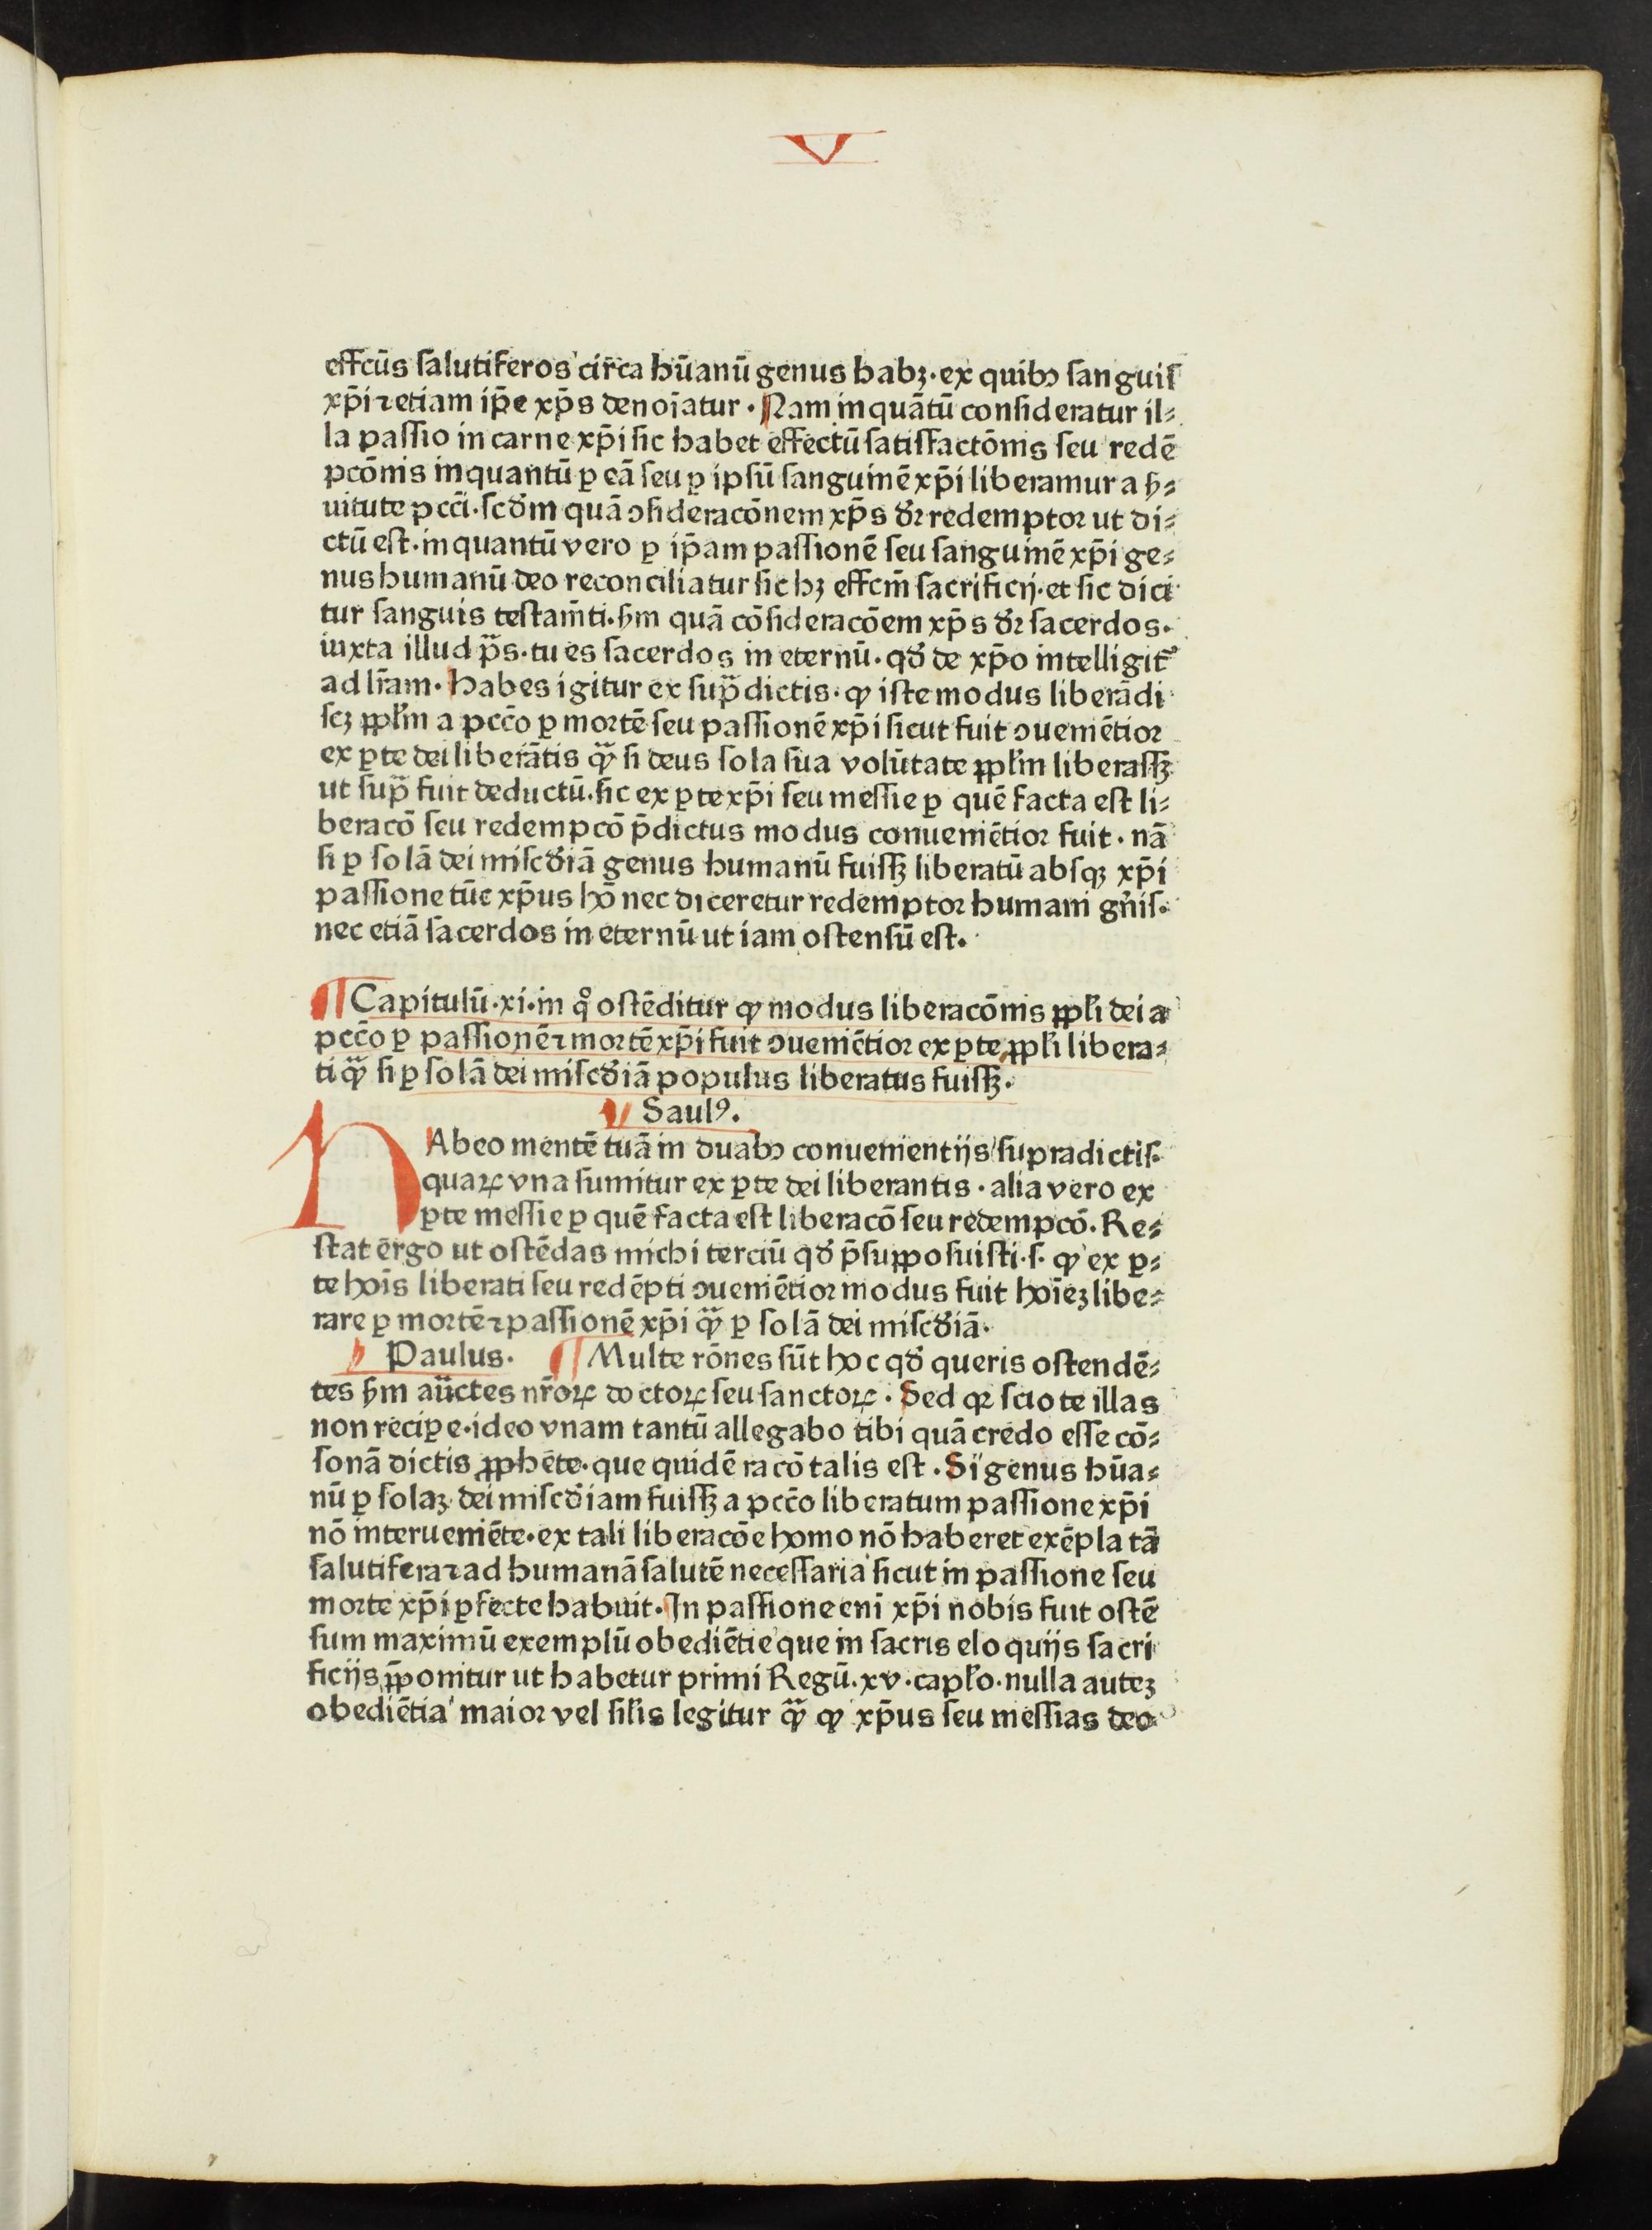 V
effcūs ſalutiferos cir̄ca hūanū genus habꝫ· ex quibꝯ ſanguiſ
xp̄i ⁊ etiam ip̄e xp̄s denoīatur · Nam inquātū conſideratur il⸗
la paſſio in carne xp̄i ſic habet effectū ſatiſfactōnis ſeu redē
pcōnis inquantū ꝑ eā ſeu ꝑ ipſū ſanguinē xp̄i liberamur a ẜ⸗
uitute pcc̄i· ſcd̄m quā ↄſideracōnem xp̄s dr̄ redemptoꝛ ut di⸗
ctū eſt· inquantū vero ꝑ ip̄am paſſionē ſeu ſanguinē xp̄i ge⸗
nus humanū deo reconciliatur ſic hꝫ effcm̄ ſacrificij· et ſic dici
tur ſanguis teſtam̄ti· ẜm quā cōſideracōem xp̄s dr̄ ſacerdos·
iuxta illud p̄s· tu es ſacerdos in eternū· qd̄ de xp̄o intelligit᷑
ad lr̄am· Habes igitur ex ſup̄dictis· ꝙ iſte modus liberādi
ſcꝫ ꝓpl̄m a pcc̄o ꝑ moꝛtē ſeu paſſionē xp̄i ſicut fuit ↄueniētioꝛ
ex ꝑte dei liberātis qᷓꝫ ſi deus ſola ſua volūtate ꝓpl̄m liberaſſꝫ
ut ſup̄ fuit deductū· ſic ex ꝑte xp̄i ſeu meſſie ꝑ quē facta eſt li⸗
beracō ſeu redempcō p̄dictus modus conueniētioꝛ fuit · nā
ſi ꝑ ſolā dei miſcd̄iā genus humanū fuiſſꝫ liberatū abſqꝫ xp̄i
paſſione tūc xp̄us hō nec diceretur redemptoꝛ humani gn̄iſ·
nec etiā ſacerdos in eternū ut iam oſtenſū eſt.
¶ Capitulū· xi· in qͦ oſtēditur ꝙ modus liberacōnis ꝓpl̄i dei a
pcc̄o ꝑ paſſionē ⁊ moꝛtē xp̄i fuit ↄueniētioꝛ ex ꝑte ꝓpl̄i libera⸗
ti qᷓꝫ ſi ꝑ ſolā dei miſcd̄iā populus liberatus fuiſſꝫ·
Saulꝰ.
HAbeo mentē tuā in duabꝯ conuenientijs ſupradictiſ·
quaꝝ vna ſumitur ex ꝑte dei liberantis · alia vero ex
ꝑte meſſie ꝑ quē facta eſt liberacō ſeu redempcō. Re⸗
ſtat ērgo ut oſtēdas michi terciū qd̄ p̄ſuppoſuiſti· ſ· ꝙ ex ꝑ⸗
te hoīs liberati ſeu redēpti ↄueniētioꝛ modus fuit hoīeꝫ libe⸗
rare ꝑ moꝛtē ⁊ paſſionē xp̄i qᷓꝫ ꝑ ſolā dei miſcd̄iā·
Paulus· ¶ Multe rōnes ſūt hoc qd̄ queris oſtendē⸗
tes ẜm au̅ctes nr̄oꝝ doctoꝝ ſeu ſanctoꝝ · Sed qꝛ ſcio te illas
non recipe· ideo vnam tantū allegabo tibi quā credo eſſe cō⸗
ſonā dictis ꝓphēte· que quidē racō talis eſt · Si genus hūa⸗
nū ꝑ ſolaꝫ dei miſcd̄iam fuiſſꝫ a pcc̄o liberatum paſſione xp̄i
nō interueniēte· ex tali liberacōe homo nō haberet exēpla tā
ſalutifera ⁊ ad humanā ſalutē neceſſaria ſicut in paſſione ſeu
moꝛte xp̄i ꝑfecte habuit· In paſſione eni xp̄i nobis fuit oſtē
ſum maximū exemplū obediētie que in ſacris eloquijs ſacri
ficijs p̄ponitur ut habetur primi Regū· xv· capl̄o· nulla auteꝫ
obediētia maioꝛ vel ſil̄is legitur qᷓꝫ ꝙ xp̄us ſeu meſſias deo